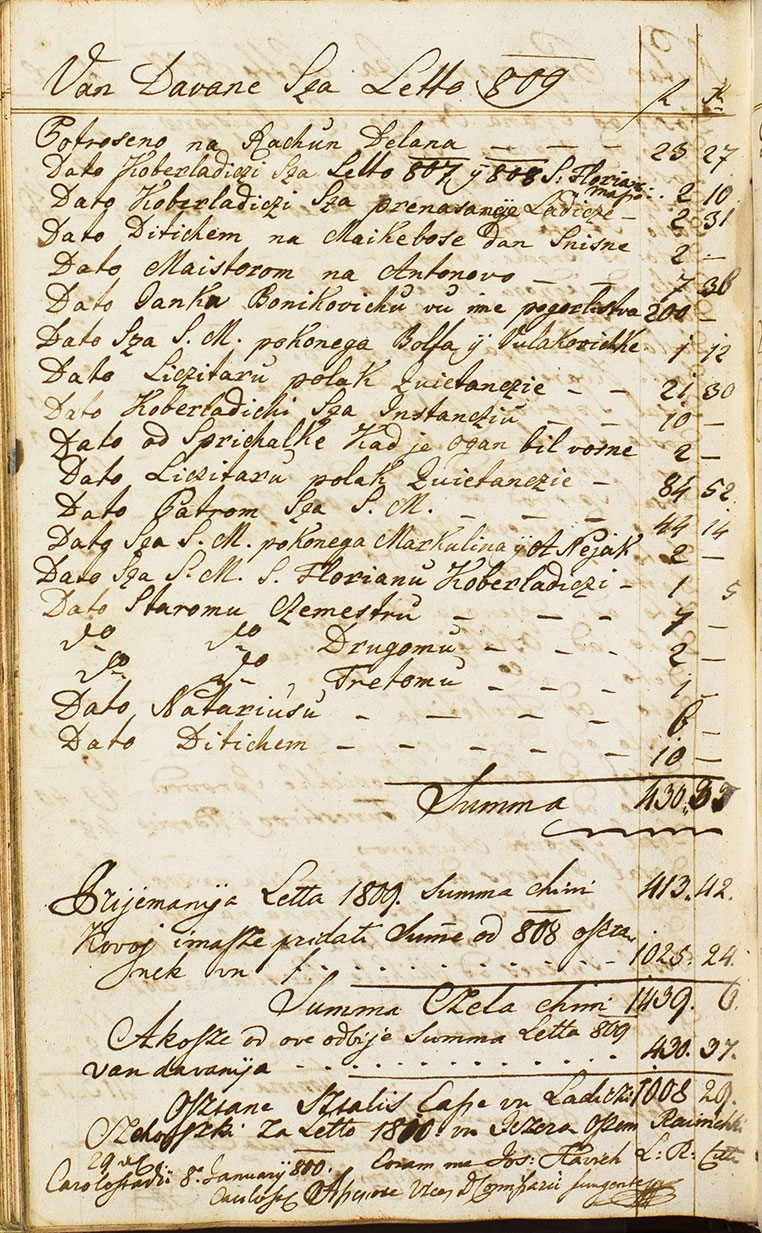 Van Davane Sza Letto 809
f k
Potroseno na Rachun Delana — — — 23 27
Dato Koberladiczi Sza Letto 807 ÿ 808 S: Florian: 2 10
Dato Koberladiczi Sza prenasanÿe Ladicze — 2 31
Dato Ditichem na Maikebose Dan Snisne 2 —
Dato Maistorom na Antonovo — — 7 36
Dato Janku Bonikovichu vu ime pogorlistva 200 —
Dato Sza S. M. pokonega Bolfa ÿ Vulakovichke 1 12
Dato Liczitaru polak Quietanczie — — 21 30
Dato Koberladichi Sza Instancziu — — 10 —
Dato od Sprichalke Kad je ogan bil vosne 2 —
Dato Liczitaru polak Quietanczie — 84 52
Dato Patrom Sza S. M. — — — 44 14
Dato Sza S. M. pokonega Markulina ÿ ot Nejak 2 —
Dato Sza S. M. S. Florianu Koberladiczi — 1 5
Dato Staromu Czemestru — — — 7 —
do do Drugomu — — — 2 —
do do Tretomu — — — 1 —
Dato Natariusu — — — — 6 —
Dato Ditichem — — — — — — 10 —
Summa 430. 37
Prijemanÿa Letta 1809. Summa chini 413. 42.
Kovoj imasze pridati Sume od 808 osza
nek vu f. . . . . . . . . . . — 1025. 24.
Summa Czela chini 1439. 6.
Akosze od ove odbije Summa Letta 809
van davanÿa . . . . . . . . . . . . 430. 37.
Osztane Sztalis Casse vu Ladiczi 1008 29.
Za Letto 1810 vu Jezera Osem
Carolostadii 8a Januarÿ 810. Coram me Jos: L: R: